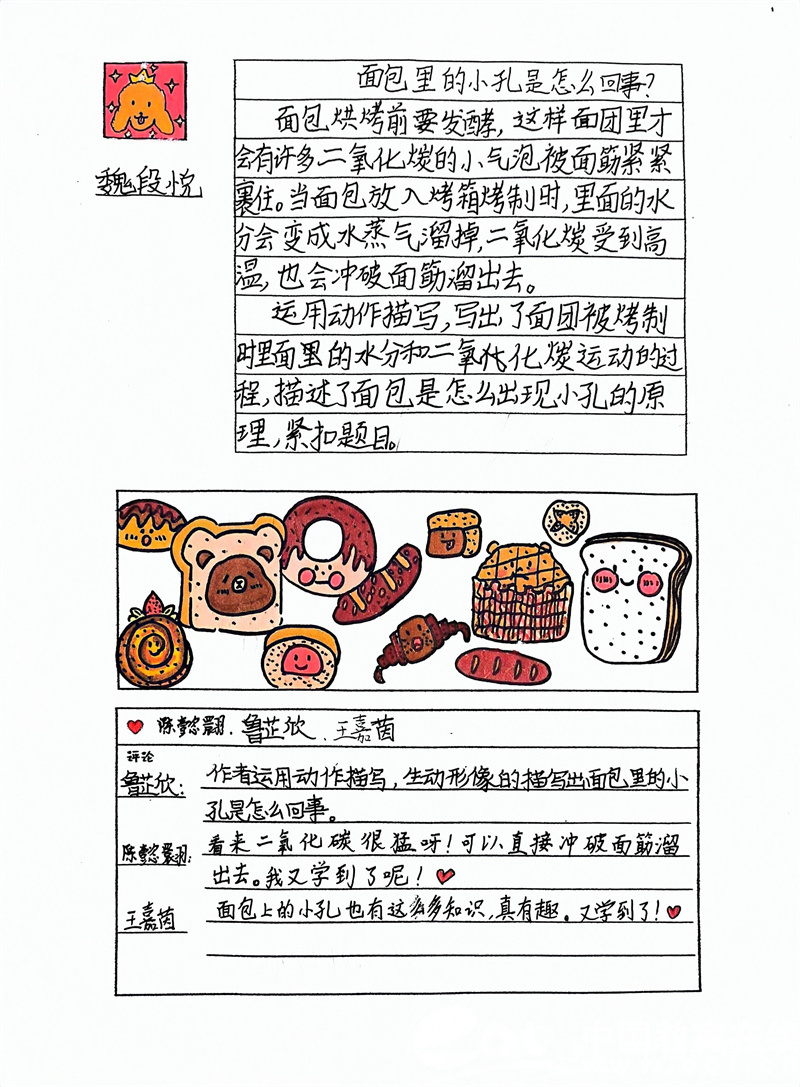 面包里的小孔是怎么回事?
面包烘烤前要发酵,这样面团里才
会有许多二氧化炭的小气泡被面筋紧紧
裹住。当面包放入烤箱烤制时,里面的水
分会变成水蒸气溜掉,二氧化炭受到高
温,也会冲破面筋溜出去。
运用动作描写,写出了面团被烤制
时里面里的水分和二氧化炭运动的过
程,描述了面包是怎么出现小孔的原
理,紧扣题目。
魏段悦
鲁芷欣.王嘉茵
评论
鲁芷欣:
作者运用动作描写,生动形像的描写出面包里的小
孔是怎么回事。
看来二氧化碳很猛呀!可以直接冲破面筋溜
出去。我又学到了呢!
王嘉茵
面包上的小孔也有这么多知识,真有趣。又学到了!